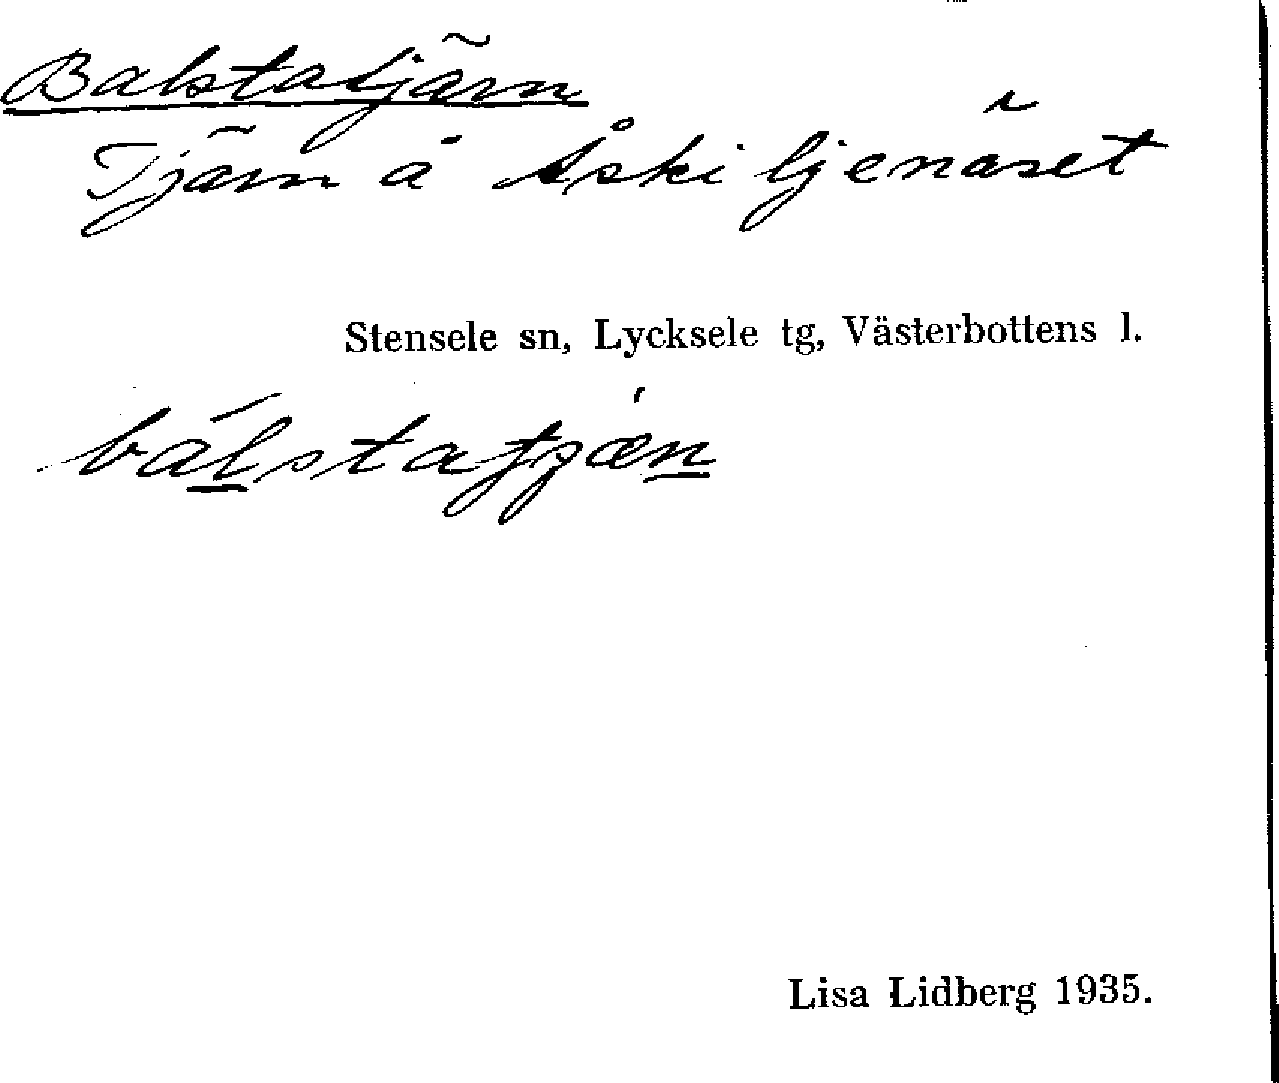 Balstatjärn
Tjärn å Åskiljenäset
Stensele sn, Lycksele tg, Västerbottens l.
bálstatjæ̀n
Lisa Lidberg 1935.